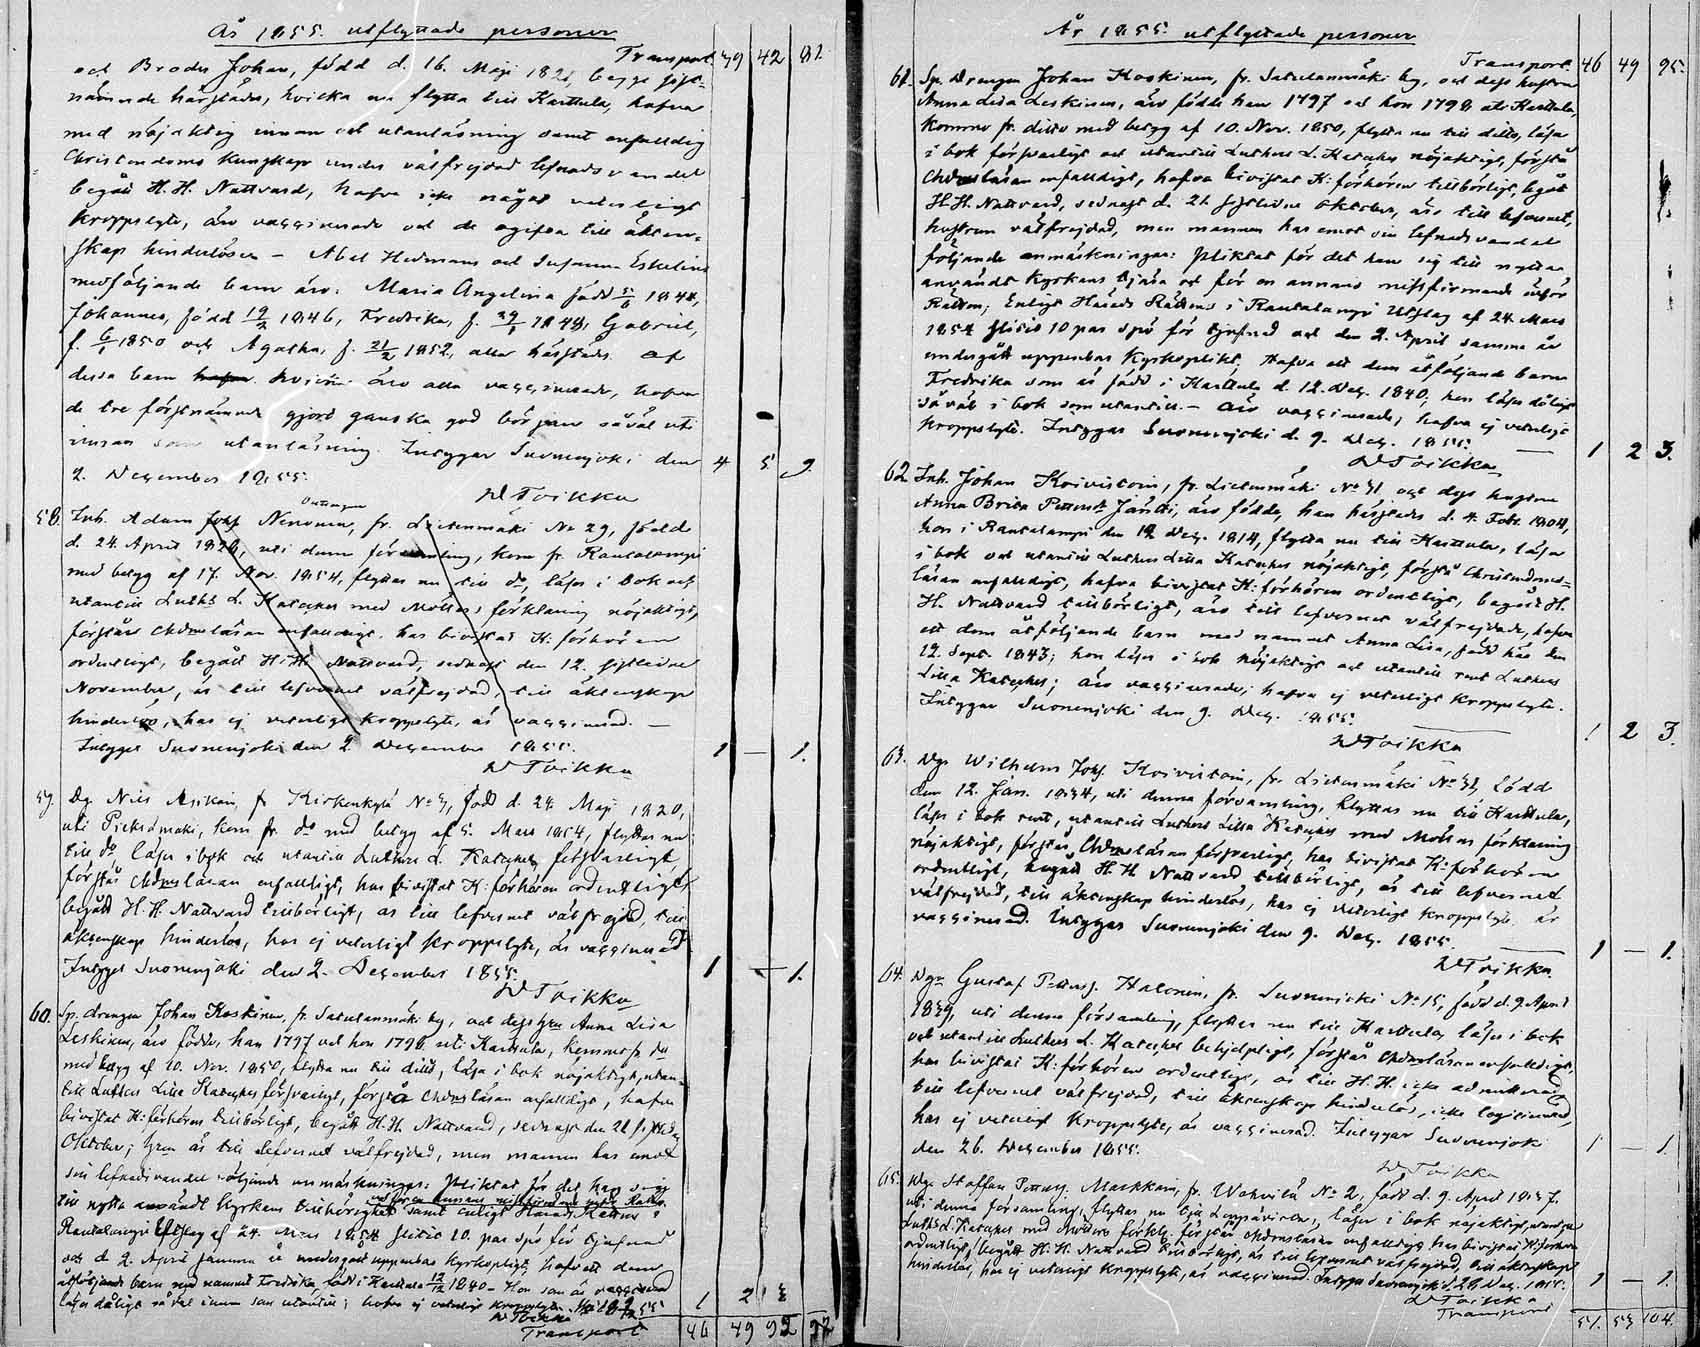 År 1855. utflyttade personer
Transport. 39 42 81.
och Broder Johan, född d. 16. Maji 1821, begge sist-
nämnde härstädes, hvilka nu flytta till Karttula, hafva
med nöjaktig innan och utanläsning samt enfalldig
Christendoms kunskap under välfrejdad lefnadsvandel
begått H. H. Nattvard, hafva icke något veterligt
kroppslyte, äro vaggirerade och de ogifta till äkten-
skap hinderlösa – Abel Hedmans och Susanna Eskelins
medföljande barn äro: Maria Angelina född 1844,
Johannes, född 19/2 1846, Fredrika, f. 29/1 1848, Gabriel,
f. 6/1 1850 och Agatha, f. 21/2 1852, alla härstädes. Af
dessa barn hvilka äro alla vaggirerade, hafva
de tre förstnämnde gjort ganska god början såväl uti
innan som utanläsning. Intygar Suonenjoki den
2. December 1855. 4 5. 9.
W Toikka
58. Inh. Adam Josf Ninonen, fr. Lietenmäki No 29, född
d. 24. April 1826, uti denna församling, kom fr. Rautalampi
med betyg af 17. Nov. 1854, flyttar nu till do, läser i bok och
utantill Luths L. Kateches med Möllers förklaring nöjaktigt,
förstår Chdmsläran enfalldigt, har bivistat K: förhören
ordentligt, begått H. H. Nattvard, sednast den 12. sistledne
November, är till lefvernet välfrejdad, till äktenskap
hinderlös, har ej veterligt kroppslyte, är vaggirerad. –
Intygar Suonenjoki den 2. December 1855. 1 – 1.
W Toikka
59. Dg. Nils Asikain, fr Kirkonkylä No 3, född d. 24. Maji 1820,
uti Pieksämäki, kom fr. do med betyg af 5. Mars 1854, flyttar nu
till do, läser i bok och utantill Luthers L. Kateches försvarligt,
förstår Chdmsläran enfalldigt, har bivistat K: förhören ordentligt,
begått H. H. Nattvard tillbörligt, är till lefvernet välfrejdad, till
äktenskap hinderlös, har ej veterligt kroppslyte, är vaggirerad
Intygar Suonenjoki den 2. December 1855. 1 – 1.
W Toikka
60. Sp. drengen Johan Koskinen, fr. Satulanmäki by, och dess hru Anna Lisa
Leskinen, äro födde, han 1797 och hon 1798 uti Karttula, kommo fr do
med betyg af 10. Nov. 1850, flytta nu till ditto, läsa i bok nöjaktigt, utan-
till Luthers Lilla Kateches försvarligt, förstå Chdmsläran enfalldigt, hafva
bivistat K: förhören tillbörligt, begått H. H. Nattvard, sednast den 21 sistl.
Oktober; hrun är till lefvernet välfrejdad, men mannen har emot
sin lefnadsvandel följande anmärkningar: Pliktat för det han sig
till nytta användt kyrkans tillhörighet samt enligt Härads Rättens i
Rautalampi Utslag af 24. Mars 1854 slitit 10. par spö för tjufnad
och d 2. April samma år undergått uppenbar kyrkoplikt, hafva ett dem
åtföljande barn med namnet Fredrika, född i Karttula 12/12 1840 – Hon som är vaggirerad
läser dåligt såväl innan som utantill; hafva ej veterligt kroppslyte. 1 2 3
W Toikka
Transport 46 49 92 92
År 1855. utflyttade personer
Transport. 46 49 95.
61. Sp. Drengen Johan Koskinen, fr. Satulanmäki by, och dess hustru
Anna Lisa Leskinen, äro födde han 1797 och hon 1798 uti Karttula,
kommo fr. ditto med betyg af 10. Nov. 1850, flytta nu till ditto, läsa
i bok försvarligt och utantill Luthers L. Kateches nöjaktigt, förstå
Chdmsläran enfalldigt, hafva bivistat K: förhören tillbörligt, begått
H. H. Nattvard, sednast d. 21 sistledne Oktober, äro till lefvernet,
hustrun välfrejdad, men mannen har emot sin lefnadsvandel
följande anmärkningar: Pliktat för det han sig till nytta
användt kyrkans tjära och för en annans missfirmande inför
Rätten; Enligt Härads Rättens i Rautalampi Utslag af 24. Mars
1854 slitit 10 par spö för tjufnad och den 2. April samma år
undergått uppenbar kyrkoplikt. Hafva ett dem åtföljande barn
Fredrika som är född i Karttula d. 12. Dec. 1840, hon läser dåligt
såväl i bok som utantill. – Äro vaggirerade, hafva ej veterligt
kroppslyte. Intygar Suonenjoki d. 9. Dec. 1855. 1 2 3.
W Toikka
62. Inh. Johan Koivistoin, fr. Lietenmäki No 31, och dess hustru
Anna Brita Pettersdr Jäntti, äro födde, han härstädes d. 4. Febr. 1804,
hon i Rautalampi den 12 Dec. 1814, flytta nu till Karttula, läsa
i bok och utantill Luthers Lilla Kateches nöjaktigt, förstå Christendoms-
läran enfalldigt, hafva bivistat K: förhören ordentligt, begått H.
H. Nattvard tillbörligt, äro till lefvernet välfrejdade, hafva
ett dem åtföljande barn med namnet Anna Lisa, född här den
12. Sept. 1843; hon läser i bok nöjaktigt och utantill rent Luthers
Lilla Kateches; äro vaggirerade; hafva ej veterligt kroppslyte.
Intygar Suonenjoki den 9. Dec. 1855. 1 2 3.
W Toikka
63. Dgr Wilhelm Josf. Koivistoin, fr. Lietenmäki No 31, född
den 12. Jan. 1834, uti denna församling, flyttar nu till Karttula,
läser i bok rent, utantill Luthers Lilla Kateches med Möllers förklaring
nöjaktigt, förstår Chdmsläran försvarligt, har bivistat K: förhören
ordentligt, begått H. H. Nattvard tillbörligt, är till lefvernet
välfrejdad, till äktenskap hinderlös, har ej veterligt kroppslyte, är
vaggirerad. Intygar Suonenjoki den 9. Dec. 1855. 1 – 1.
W Toikka.
64. Dgn Gustaf Pettersf. Halonen, fr. Suonenjoki No 15, född d. 9 April
1839, uti denna församling, flyttar nu till Karttula, läser i bok
och utantill Luthers L. Kateches behjelpligt, förstår Chdmsläran enfalldigt,
har bivistat K: förhören ordentligt, är till H. H. icke admitterad,
till lefvernet välfrejdad, till äktenskap hinderlös, icke legitimerad,
har ej veterligt kroppslyte, är vaggirerad. Intygar Suonenjoki
den 26. December 1855. 1 – 1.
W Toikka
65. Dgr. Staffan Pettersf. Markkain, fr. Wehvilä No 2, född d. 9. April 1837.
uti denna församling, flyttar nu till Leppävirta, läser i bok nöjaktigt, utantill
Luths L. Kateches med Möllers förklg. förstår Chdmsläran enfalldigt, har bivistat K: förhören
ordentligt, begått H. H. Nattvard tillbörligt, är till lefvernet välfrejdad, till äktenskap
hinderlös, har ej veterligt kroppslyte, är vaggirerad. Intygar Suonenjoki d. 29 Dec. 1855. 1 – 1.
W Toikka
Transport 51. 53 104.